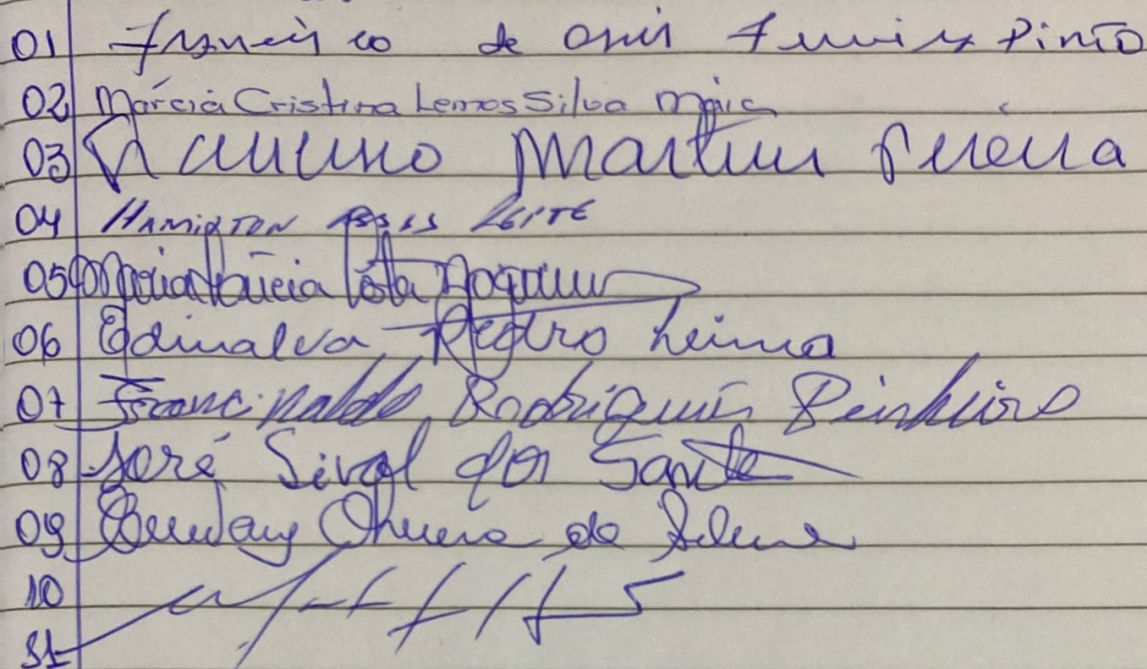 01 Francisco de Assis Pinto
02 Márcia Cristina Lemos Silva Maia
03 Martins Pereira
04 HAMILTON ASSIS LEITE
05 Maria Márcia Costa Nogueira
06 Edinalva Pedro Leima
07 Francinaldo Rodrigues Pinheiro
08 José Sival dos Santos
09 Oliveira da Silva
10
11